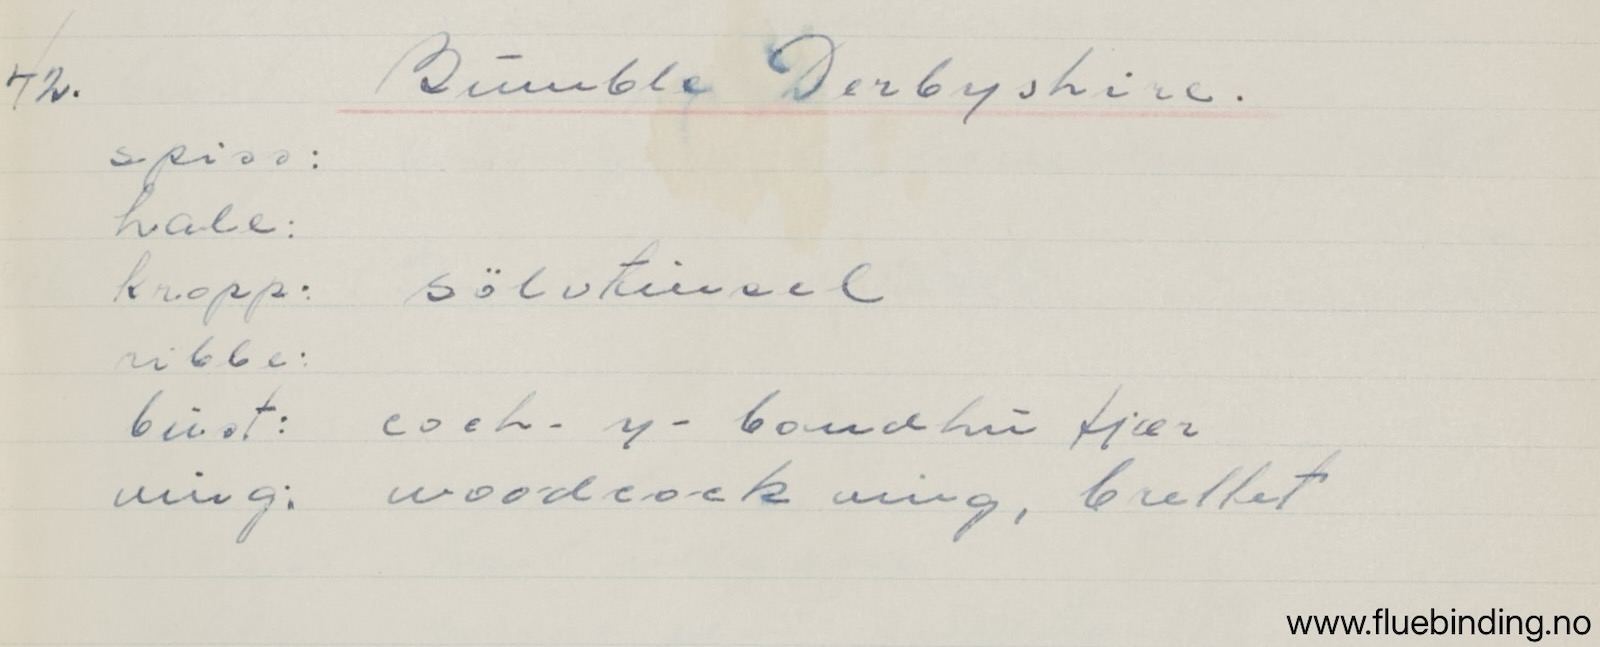 42. Bŭmble Derbyshire.
spiss:
hale:
kropp: sölvtinsel
ribbe:
bŭst: coch-y-bondhŭ fjær
ving: woodcock ving, brettet
www.fluebinding.no